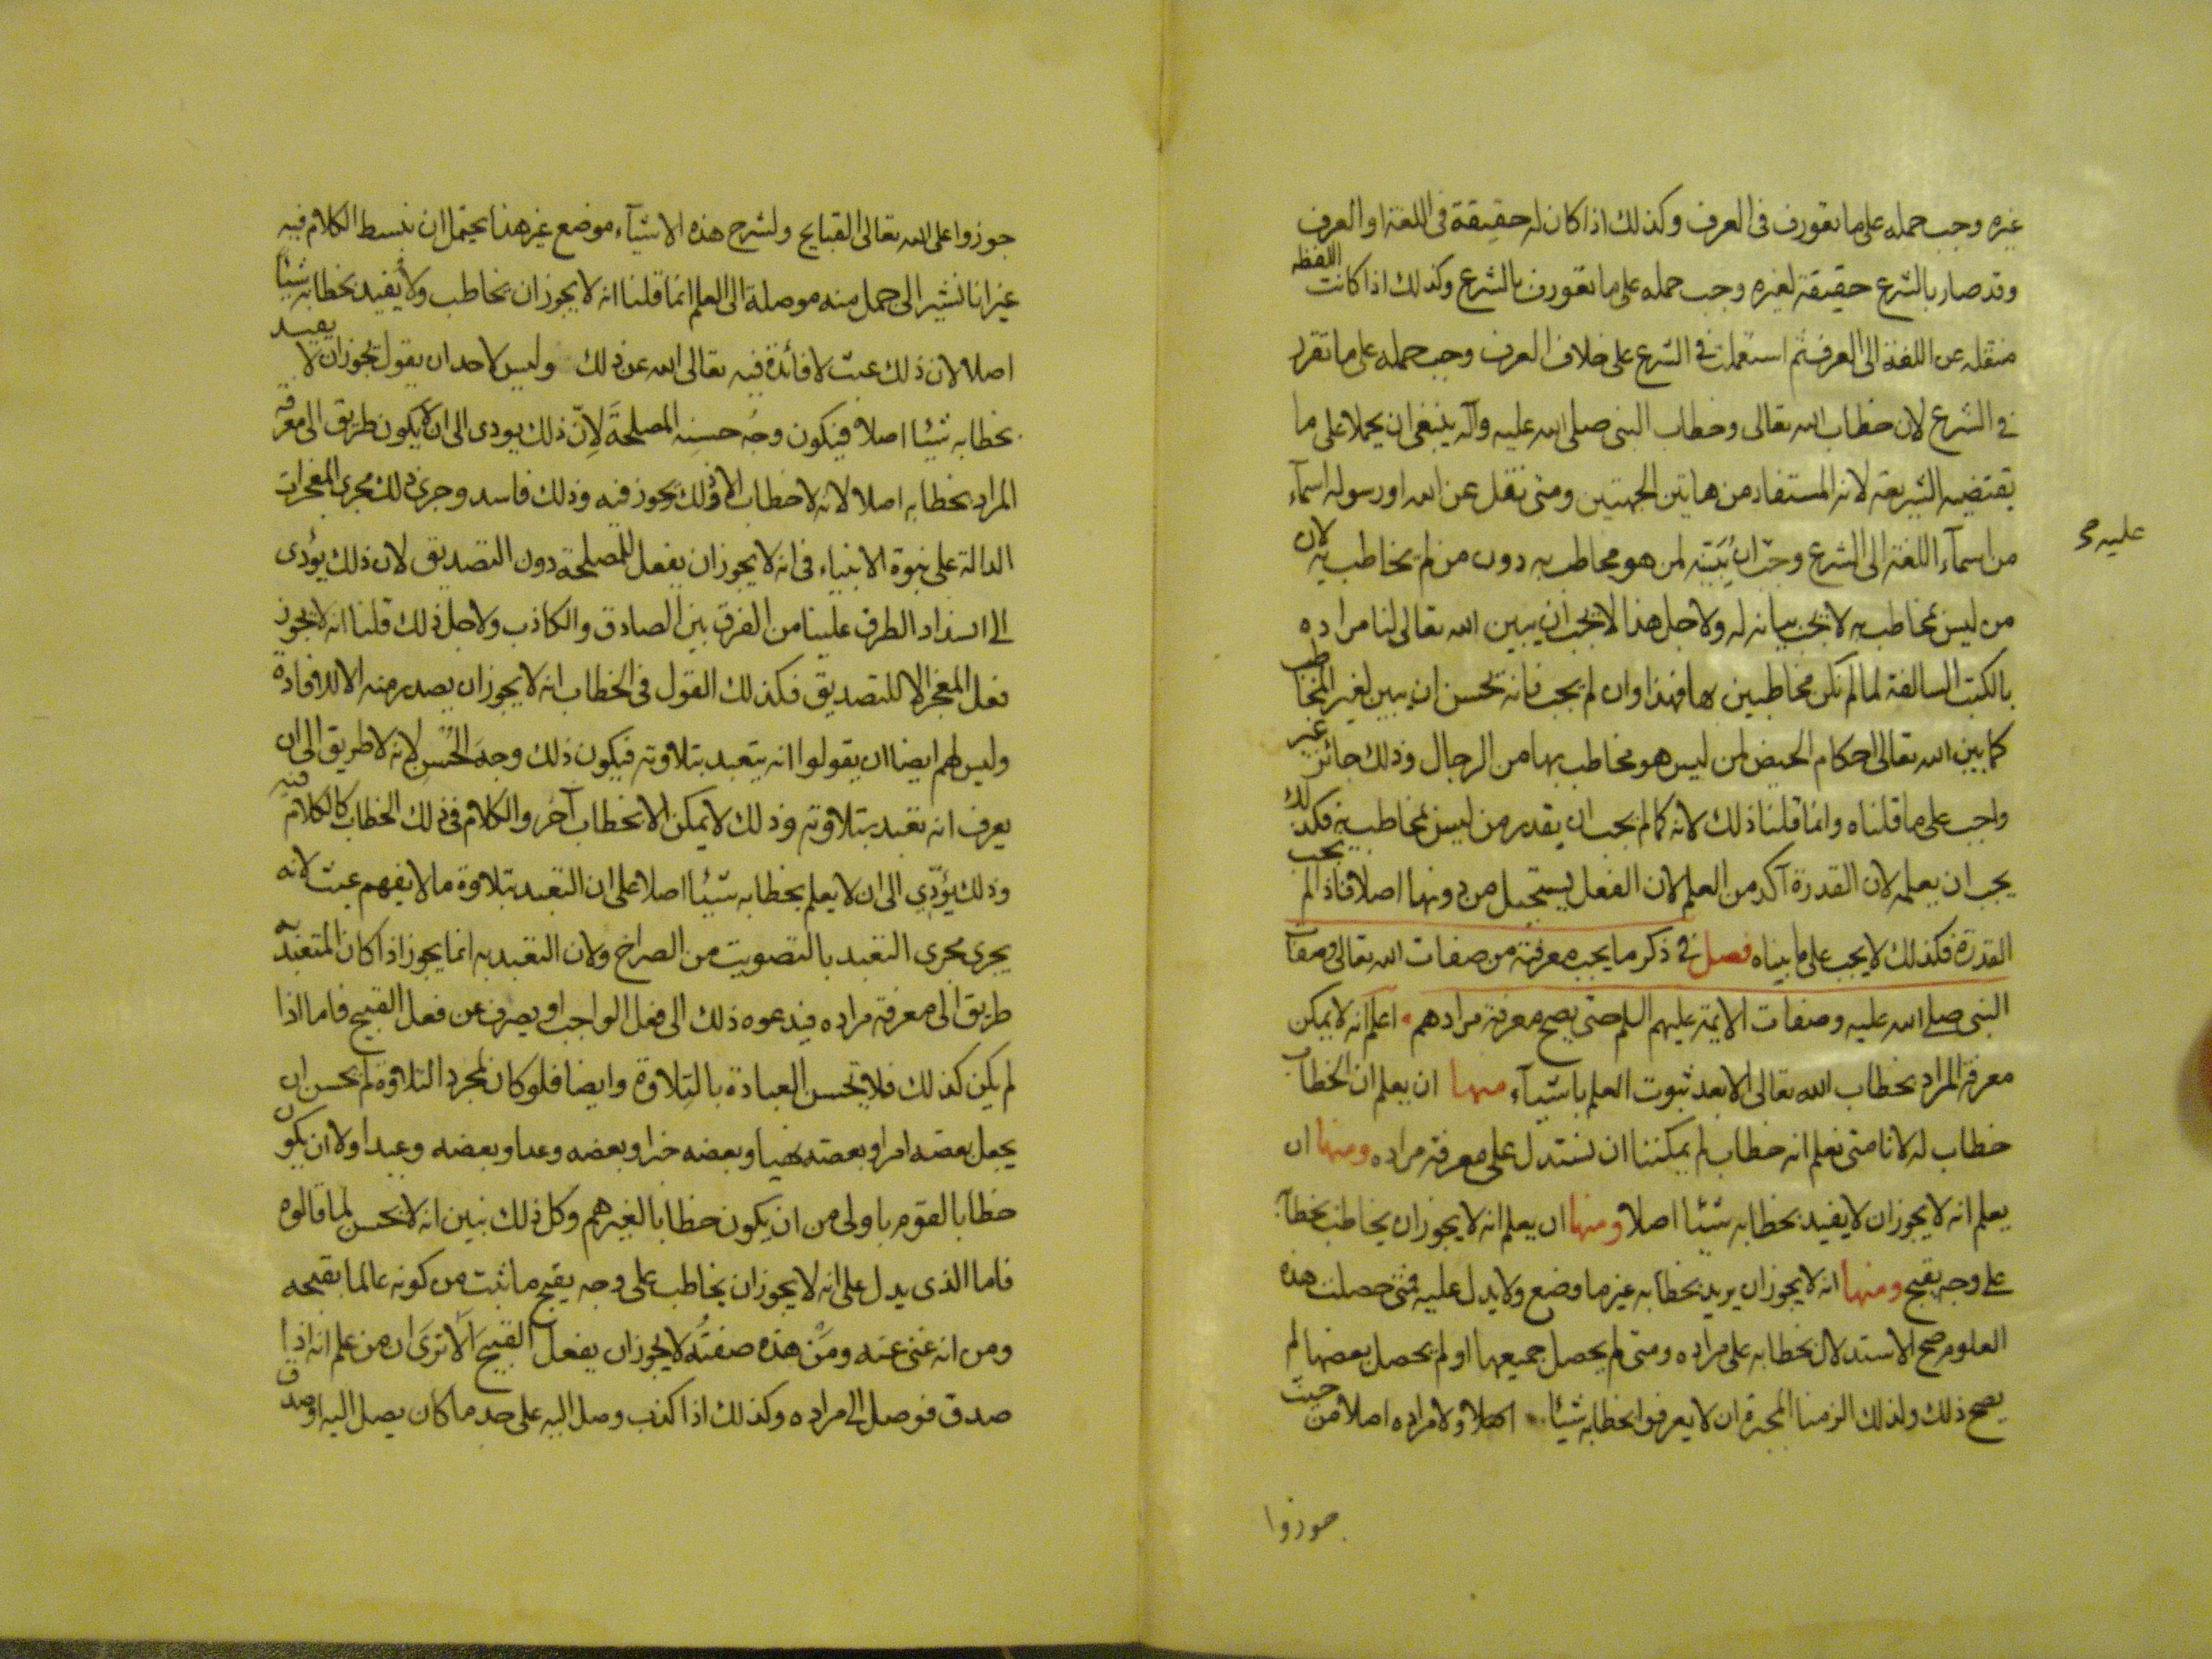 غيره وجب حمله على ما تعورف في العرف وكذلك اذا كان له حقيقة في اللغة او العرف
وقد صار بالشرع حقيقة لغيره وجب حمله على ما تعورف بالشرع وكذلك اذا كانت اللفظة
منتقله عن اللغة الى العرف ثم استعملت في الشرع على خلاف العرف وجب حمله على ما تقرر
في الشرع لان خطاب الله تعالى وخطاب النبي صلى الله عليه وآله ينبغي ان يحملا على ما
يقتضيه الشريعة لانه المستفاد من هاتين الجهتين ومتى نقل عن الله او رسوله اسمآء
من اسمآء اللغة الى الشرع وجب ان يبينه لمن هو مخاطب به دون من لم يخاطب به لان
عليه
من ليس بمخاطب به لا يجب بيانه له ولاجل هذا لا يجب ان يبين الله تعالى لنا مراده
بالكتب السالفة لما لم نكن مخاطبين بها فهذا وان لم يجب فانه يحسن ان يبين لغير المخاطب
كما بين الله تعالى احكام الحيض لمن ليس هو مخاطب بها من الرجال وذلك جائز غير
واجب على ما قلناه وانما قلنا ذلك لانه كما لم يجب ان يقدر من ليس بمخاطب به فكذلك
يجب ان يعلمه لان القدرة آكد من العلم لان الفعل يستحيل من دونها اصلا فاذا لم يجب
القدرة فكذلك لا يجب على ما بيناه فصل في ذكر ما يجب معرفته من صفات الله تعالى وصفات
النبي صلى الله عليه وصفات الائمة عليهم السلم حتى يصح معرفة مرادهم اعلم انه لا يمكن
معرفة المراد بخطاب الله تعالى الا بعد ثبوت العلم باشيآء منها ان يعلم ان الخطاب
خطاب له لانا متى نعلم انه خطاب لم يمكننا ان نستدل على معرفة مراده ومنها ان
يعلم انه لا يجوز ان لا يفيد بخطابه شيئا اصلا ومنها ان يعلم انه لا يجوز ان يخاطب بخطاب
على وجه يقبح ومنها انه لا يجوز ان يريد بخطابه غير ما وضع ولا يدل عليه فمتى حصلت هذه
العلوم صح الاستدلال بخطابه على مراده ومتى لم يحصل جميعها او لم يحصل بعضها لم
يصح ذلك ولذلك الزمنا المجبرة ان لا يعرفوا بخطابه شيئا اصلا ولا مراده اصلا من حيث
جوزوا
جوزوا على الله تعالى القبايح ولشرح هذه الاشيآء موضع غير هذا يحتمل ان نبسط الكلام فيه
غير انا نشير الى جمل منه موصلة الى العلم انما قلنا انه لا يجوز ان يخاطب ولا يفيد بخطابه شيئا
اصلا لان ذلك عبث لا فائدة فيه تعالى الله عن ذلك وليس لاحد ان يقول يجوز ان لا يفيد
بخطابه شيئا اصلا فيكون وجه حسنه المصلحة لان ذلك يودى الى ان لا يكون طريق الى معرفة
المراد بخطابه اصلا لانه لا خطاب الا وذلك يجوز فيه وذلك فاسد وجرى ذلك مجرى المعجزات
الدالة على نبوة الانبياء في انه لا يجوز ان يفعل للمصلحة دون التصديق لان ذلك يؤدى
الى انسداد الطرق علينا من الفرق بين الصادق والكاذب ولاجل ذلك قلنا انه لا يجوز
فعل المعجز الا للتصديق فكذلك القول في الخطاب انه لا يجوز ان يصدر منه الا للافادة
وليس لهم ايضا ان يقولوا انه يتعبد بتلاوته فيكون ذلك وجه الحسن لانه لا طريق الى ان
يعرف انه تعبد بتلاوته وذلك لا يمكن الا بخطاب آخر والكلام في ذلك الخطاب كالكلام فيه
وذلك يؤدي الى ان لا يعلم بخطابه شيئا اصلا على ان التعبد بتلاوة ما لا يفهم عبث لانه
يجرى مجرى التعبد بالتصويت من الصراخ ولان التعبد به انما يجوز اذا كان للمتعبد به
طريق الى معرفة مراده فيدعوه ذلك الى فعل الواجب او يصرف عن فعل القبيح فاما اذا
لم يكن كذلك فلا يحسن العبادة بالتلاوة وايضا فلو كان لمجرد التلاوة لم يحسن ان
يجعل بعضه امرا وبعضه نهيا وبعضه خبرا وبعضه وعدا وبعضه وعيدا ولا ان يكون
خطابا لقوم باولى من ان يكون خطابا لغيرهم وكل ذلك نبين انه لا يحسن لما قالوه
فاما الذى يدل على انه لا يجوز ان يخاطب على وجه يقبح ما ثبت من كونه عالما بقبحه
ومن انه غنى عنه ومن هذه صفته لا يجوز ان يفعل القبيح الا ترى ان من علم انه اذا
صدق فوصل الى مراده وكذلك اذا كذب وصل اليه على حد ما كان يصل اليه او صدق